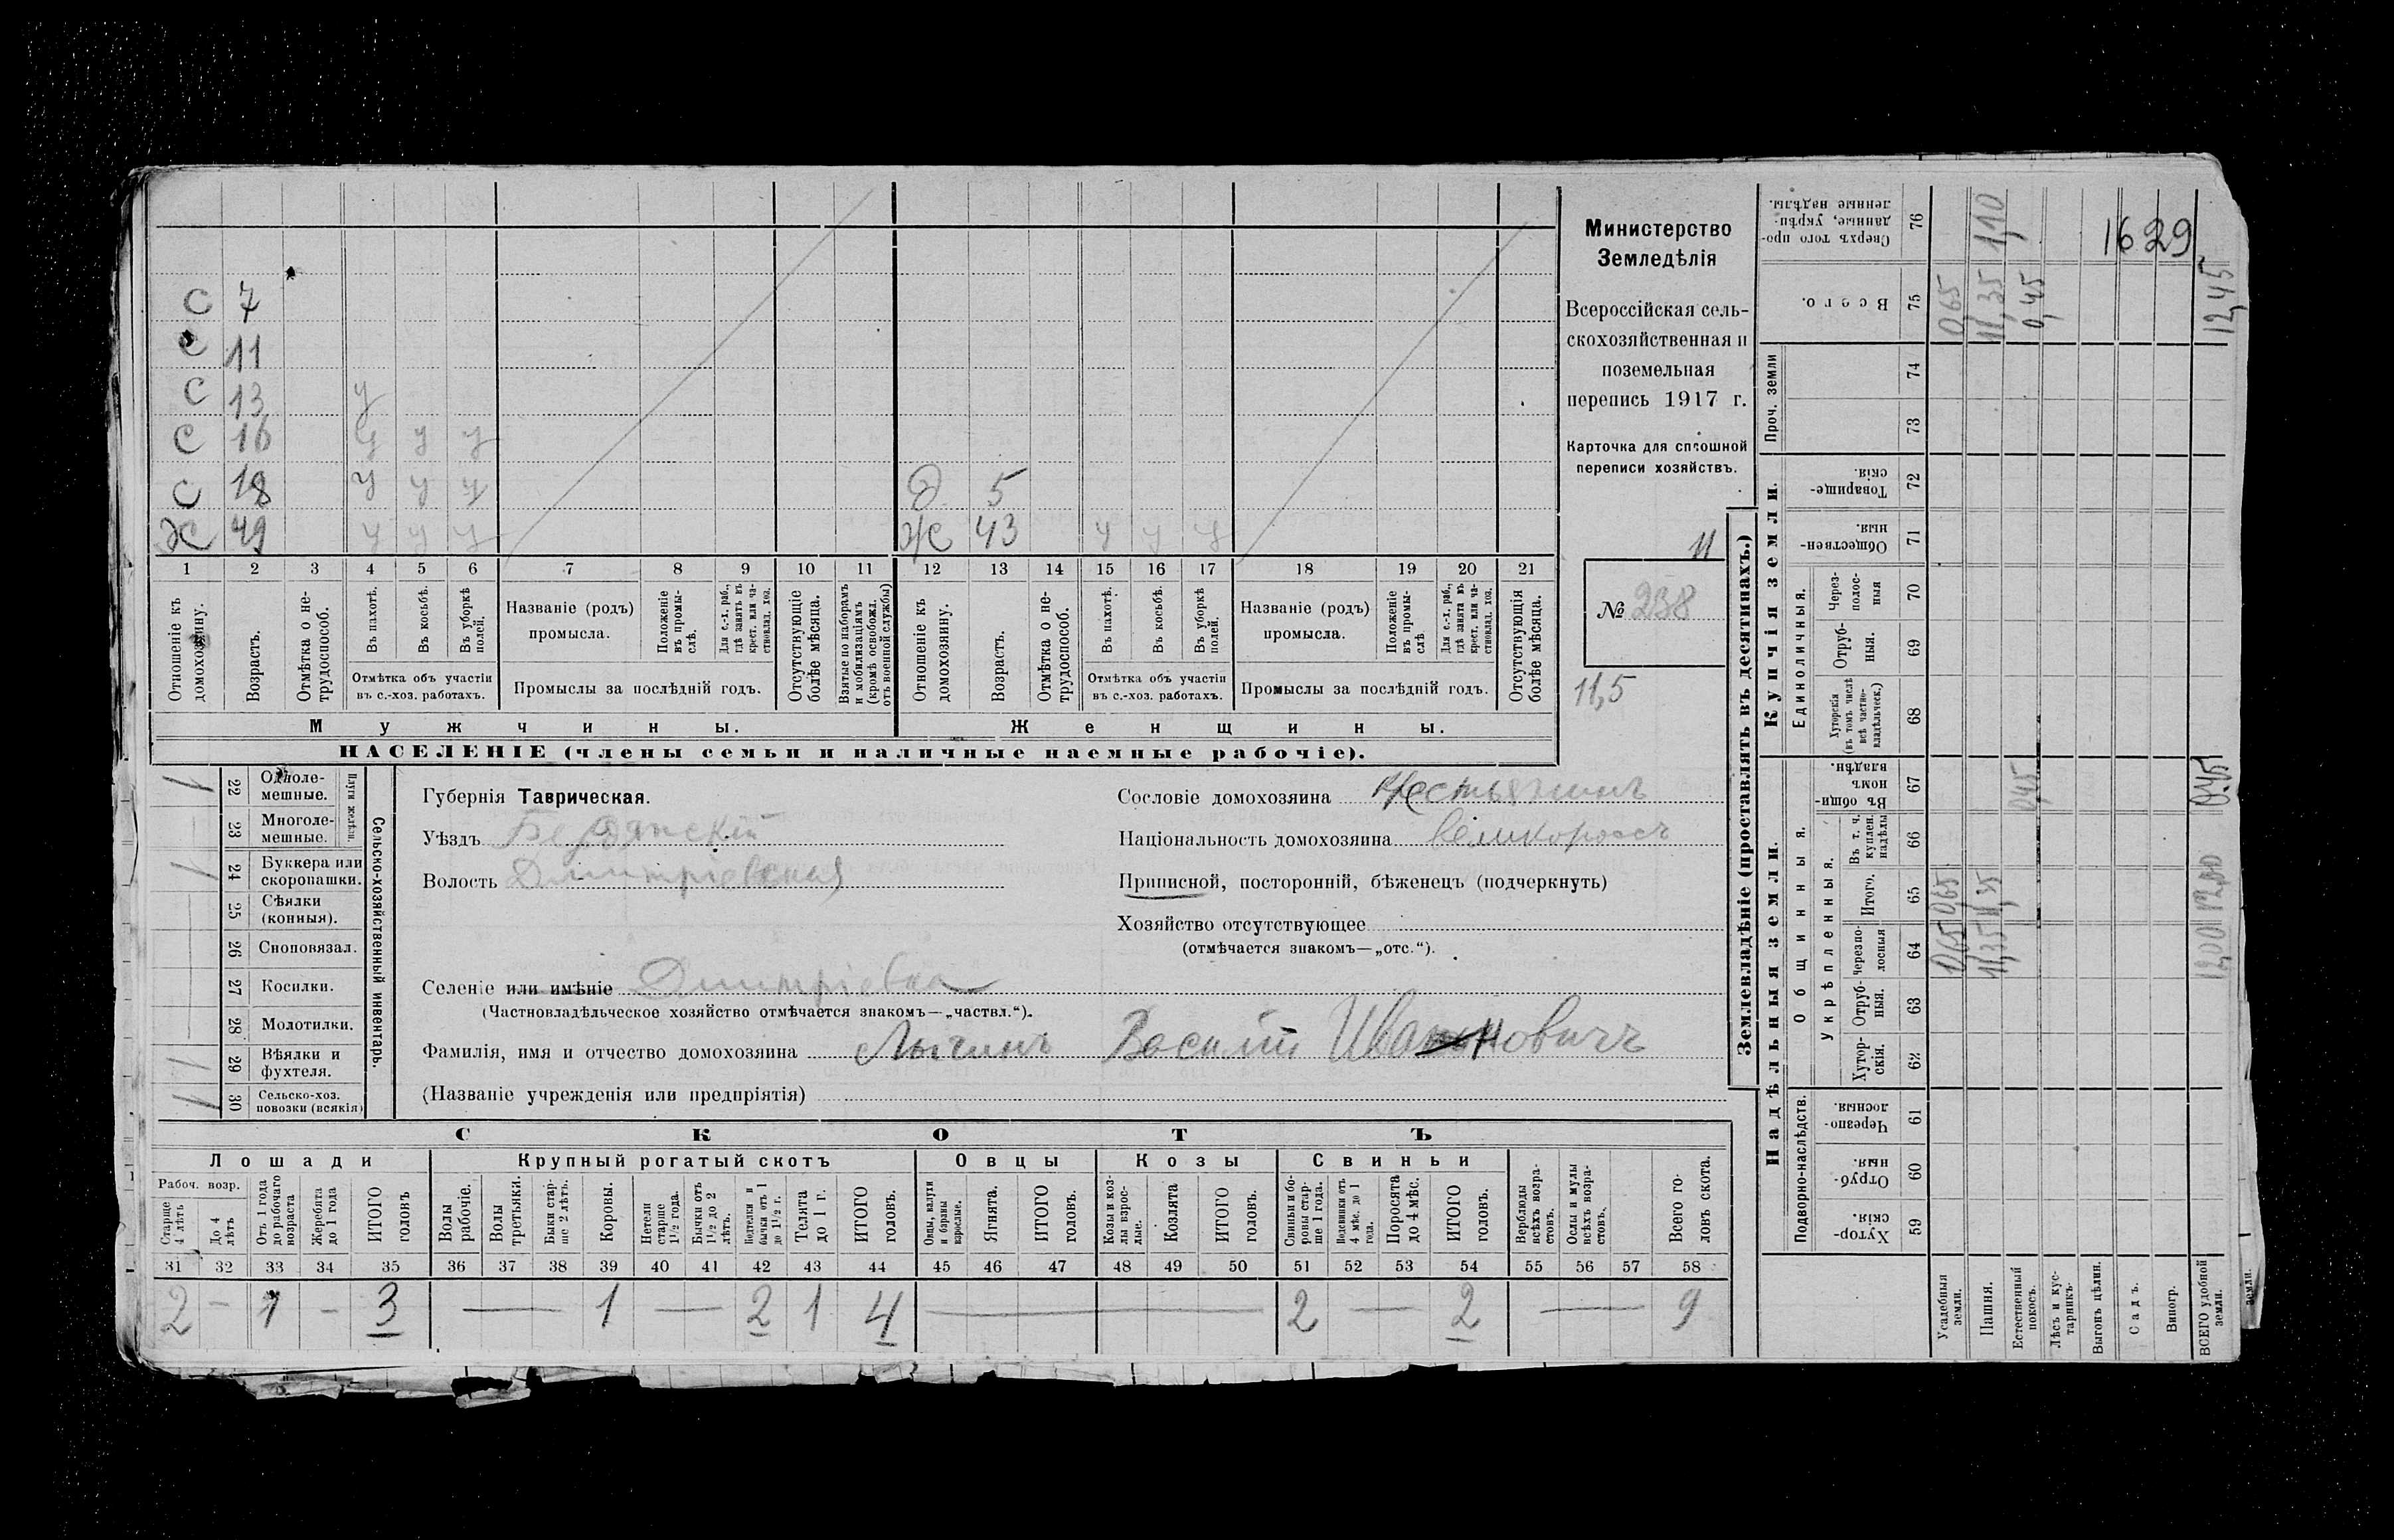 С 7
С 11
С 13 у
С 16 у у у
С 18 у у у Д 5
Х 49 у у у Ж 43 у у у
1 2 3 4 5 6 7 8 9 10 11 12 13 14 15 16 17 18 19 20 21
Отношеніе къ домохозяину.
Возрастъ.
Отмѣтка о не-
трудоспособ.
Въ пахотѣ.
Въ косьбѣ.
Въ уборкѣ
полей.
Отмѣтка объ участіи
въ с.-хоз. работахъ.
Названіе (родъ)
промысла.
Положеніе
въ промы-
слѣ.
Для с.-х. раб.,
гдѣ занятъ въ
крест. или ча-
стновлад. хоз.
Промыслы за послѣдній годъ.
Отсутствующіе
болѣе мѣсяца.
Взятые по наборамъ
и мобилизаціямъ
(кромѣ освобожд.
отъ военной службы)
Отношеніе къ
домохозяину.
Возрастъ.
Отмѣтка о не-
трудоспособ.
Въ пахотѣ.
Въ косьбѣ.
Въ уборкѣ
полей.
Отмѣтка объ участіи
въ с.-хоз. работахъ.
Названіе (родъ)
промысла.
Положеніе
въ промы-
слѣ
Для с.-х. раб.,
гдѣ занята въ
крест. или ча-
стновлад. хоз.
Промыслы за послѣдній годъ.
Отсутствующія
болѣе мѣсяца.
Мужчины.
Женщины.
НАСЕЛЕНІЕ (члены семьи и наличные наемные рабочіе).
Министерство
Земледѣлія
Всероссійская сель-
скохозяйственная и
поземельная
перепись 1917 г.
Карточка для сплошной
переписи хозяйствъ.
11
№ 238
11,5
1 22 Одноле-
мешные.
23 Многоле-
мешные.
Плуги желѣзн.
1 24 Буккера или
скоропашки.
25 Сѣялки
(конныя).
26 Сноповязал.
27 Косилки.
28 Молотилки.
1 29 Вѣялки и
фухтеля.
1 30 Сельско-хоз.
повозки (всякія)
Сельско-хозяйственный инвентарь.
Губернія Таврическая.
Уѣздъ Бердянскій
Волость Дмитріевская
Сословіе домохозяина Крестьянинъ
Національность домохозяина великороссъ
Приписной, посторонній, бѣженецъ (подчеркнуть)
Хозяйство отсутствующее
(отмѣчается знакомъ—„отс.“).
Селеніе или имѣніе Дмитріевка
(Частновладѣльческое хозяйство отмѣчается знакомъ—„частвл.“).
Фамилія, имя и отчество домохозяина Лычинъ Василій Ивановичъ
(Названіе учрежденія или предпріятія)
СКОТЪ
Лошади Крупный рогатый скотъ Овцы Козы Свиньи
Рабоч. возр.
Старше
4 лѣтъ
До 4
лѣтъ
Отъ 1 года
до рабочаго
возраста
Жеребята
до 1 года
ИТОГО
головъ
Волы
рабочіе.
Волы
третьяки.
Быки стар-
ше 2 лѣтъ.
Коровы.
Нетели
старше
1½ года.
Бычки отъ
1½ до 2
лѣтъ.
Подтелки и
бычки отъ 1
до 1½ г.
Телята
до 1 г.
ИТОГО
головъ.
Овцы, валухи
и бараны
взрослые.
Ягнята.
ИТОГО
головъ.
Козы и коз-
лы взрос-
лые.
Козлята
ИТОГО
головъ.
Свиньи и бо-
ровы стар-
ше 1 года.
Подсвинки отъ
4 мѣс. до 1
года.
Поросята
до 4 мѣс.
ИТОГО
головъ.
Верблюды
всѣхъ возра-
стовъ.
Ослы и мулы
всѣхъ возра-
стовъ.
Всего го-
ловъ скота.
31 32 33 34 35 36 37 38 39 40 41 42 43 44 45 46 47 48 49 50 51 52 53 54 55 56 57 58
2 — 1 — 3 — 1 — 2 1 4 — 2 — 2 — 9
Землевладѣніе (проставлять въ десятинахъ.)
Надѣльныя земли.
Купчія земли.
Проч. земли
Подворно-наслѣдств.
Общинныя.
Укрѣпленныя.
Единоличныя.
Хутор-
скія. 59
Отруб-
ныя. 60
Черезпо-
лосныя. 61
Хутор-
скія. 62
Отруб-
ныя. 63
Черезпо-
лосныя 64
Итого. 65
Въ т. ч.
куплен.
надѣлы 66
Въ общи-
номъ
владѣн. 67
Хуторскія
(въ томъ числѣ
всѣ частно-
владѣльческ.) 68
Отруб-
ныя. 69
Через-
полос-
ныя 70
Обществен-
ныя. 71
Товарище-
скія. 72
73
74
Всего. 75
Сверхъ того про-
данные, укрѣп-
ленные надѣлы. 76
Усадебныя
земли. 0,65 0,65 0,65
Пашня. 11,35 11,35 11,35 1,10
Естественный
покосъ. 0,45 0,45
Лѣсъ и кус-
тарникъ.
Выгонъ цѣлин.
Садъ.
Виногр.
ВСЕГО удобной
земли. 12,00 12,00 0,45 12,45
земли.
1629